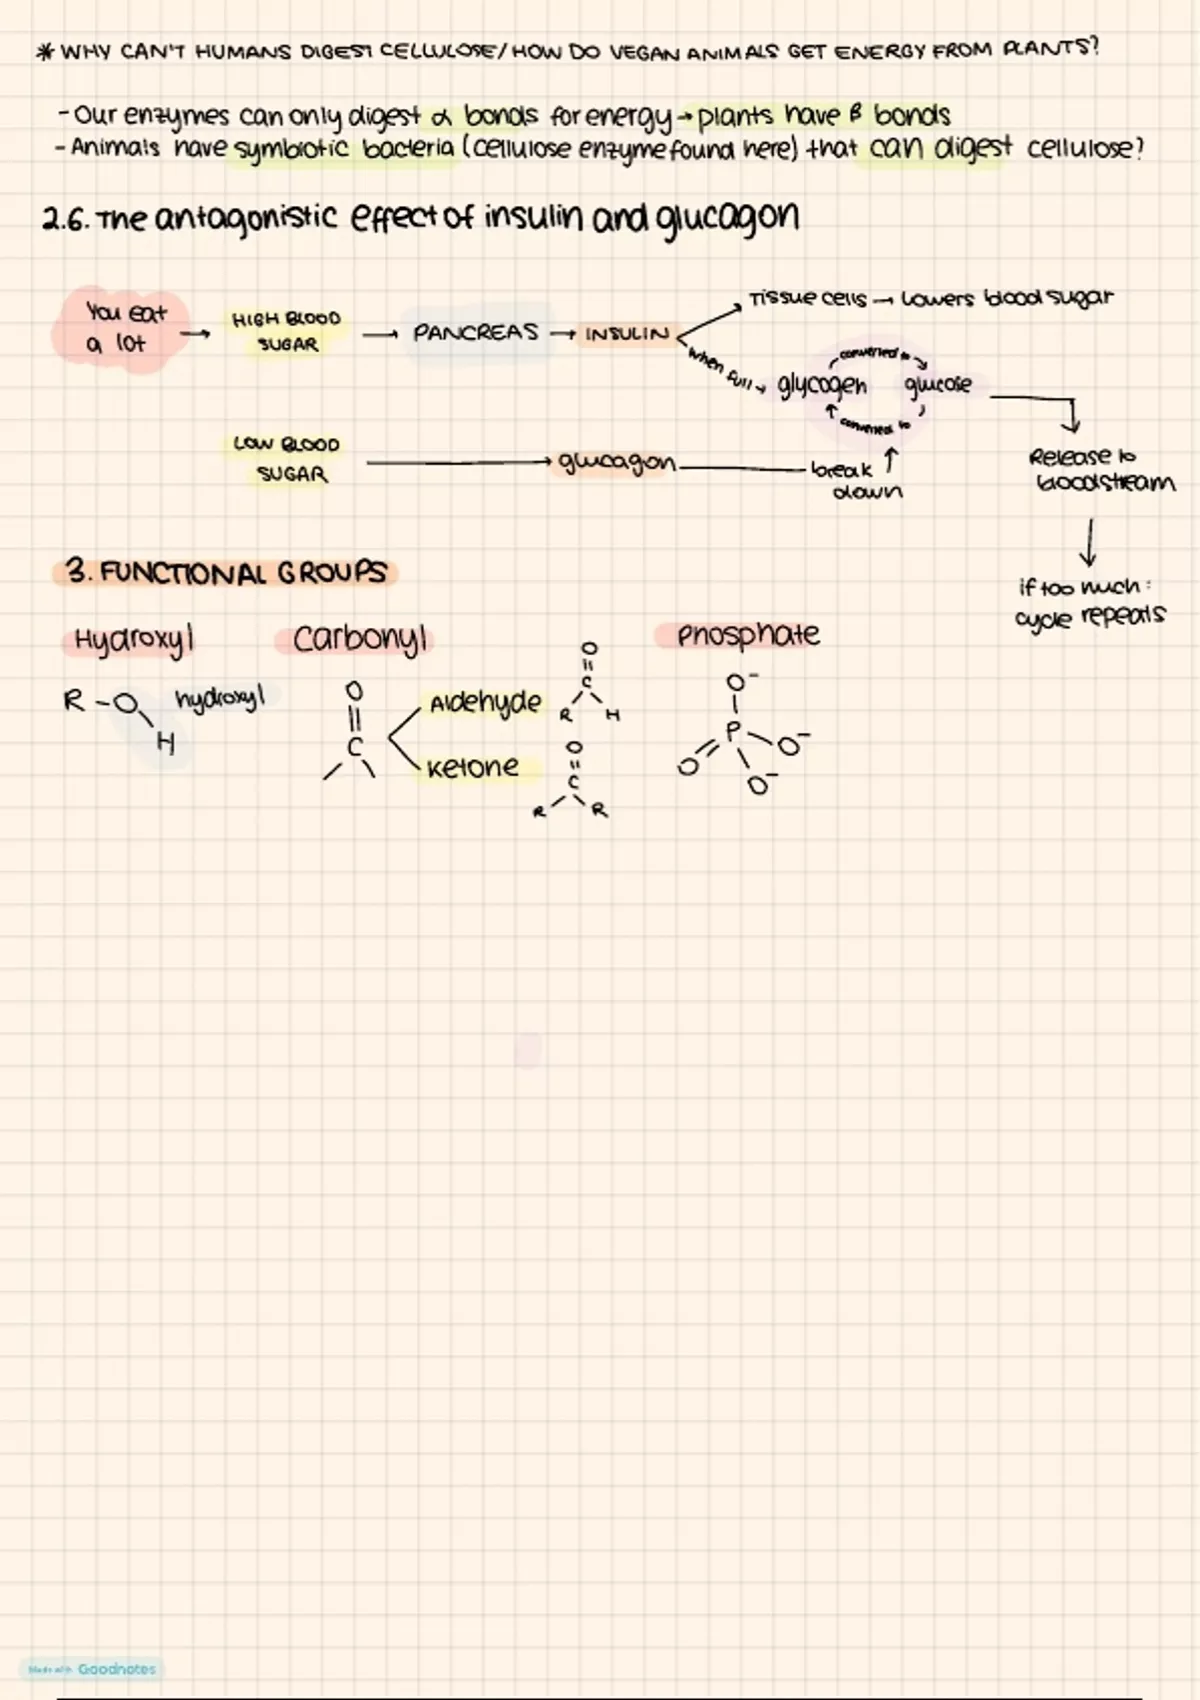 * WHY CAN'T HUMANS DIGEST CELLULOSE/HOW DO VEGAN ANIMALS GET ENERGY FROM PLANTS?
- Our enzymes can only digest α bonds for energy → plants have β bonds
- Animals have symbiotic bacteria (cellulose enzyme found here) that can digest cellulose?
2.6. The antagonistic effect of insulin and glucagon
You eat
a lot
→ HIGH BLOOD
SUGAR
→ PANCREAS → INSULIN
Tissue cells → Lowers blood sugar
when full →
glycogen
converted to
glucose
converted to
LOW BLOOD
SUGAR
→ glucagon
break
down
Release to
bloodstream
if too much:
cycle repeats
3. FUNCTIONAL GROUPS
Hydroxyl
R - O
H
hydroxyl
Carbonyl
O
C
Aldehyde
O
C
R H
Ketone
O
C
R R
Phosphate
O⁻
P
O O⁻
O⁻
Made with Goodnotes